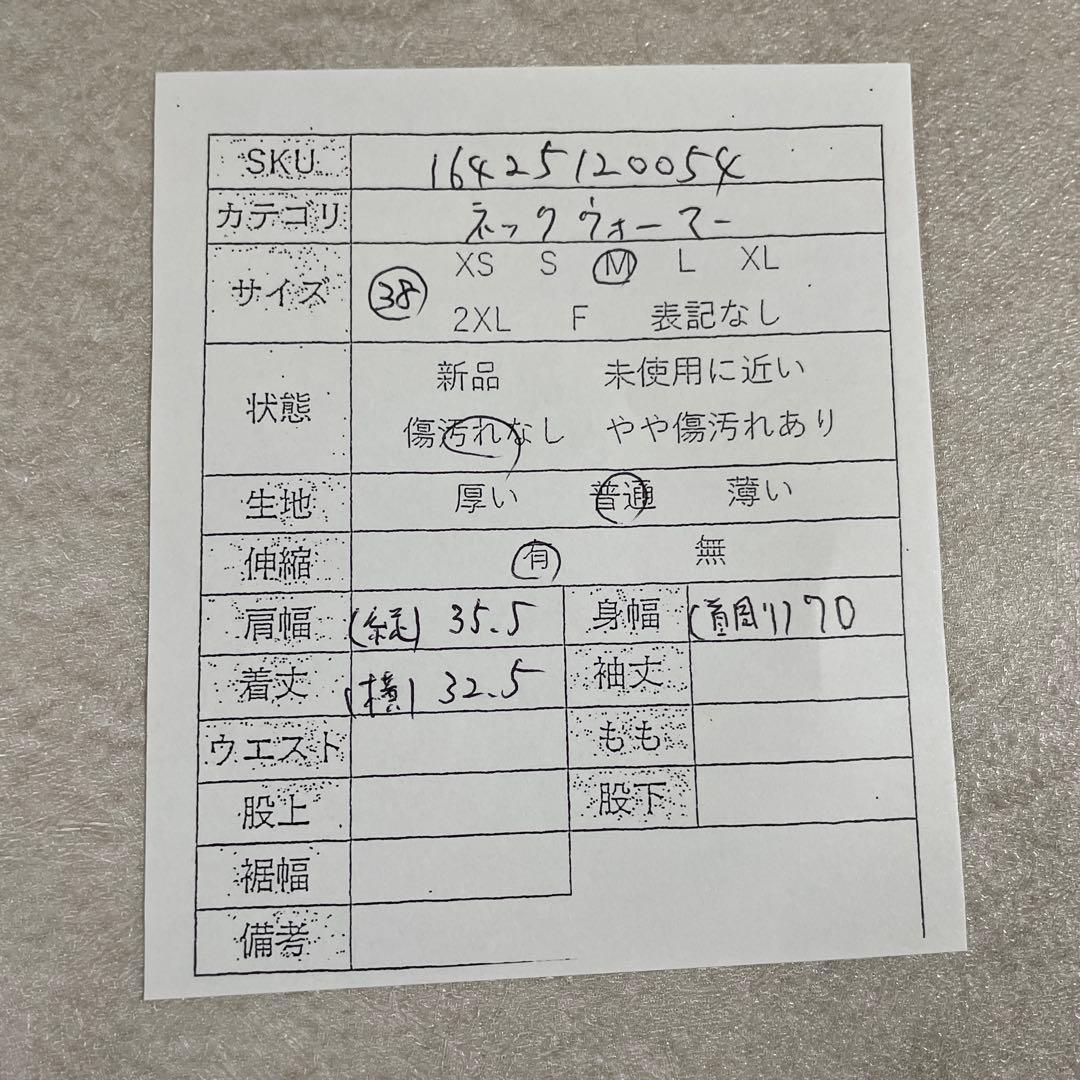 SKU 16425120054
カテゴリ ネックウォーマー
サイズ 38 XS S M L XL
2XL F 表記なし
状態 新品 未使用に近い
傷汚れなし やや傷汚れあり
生地 厚い 普通 薄い
伸縮 有 無
肩幅 (縦) 35.5 身幅 (首周り) 70
着丈 (横) 32.5 袖丈
ウエスト もも
股上 股下
裾幅
備考